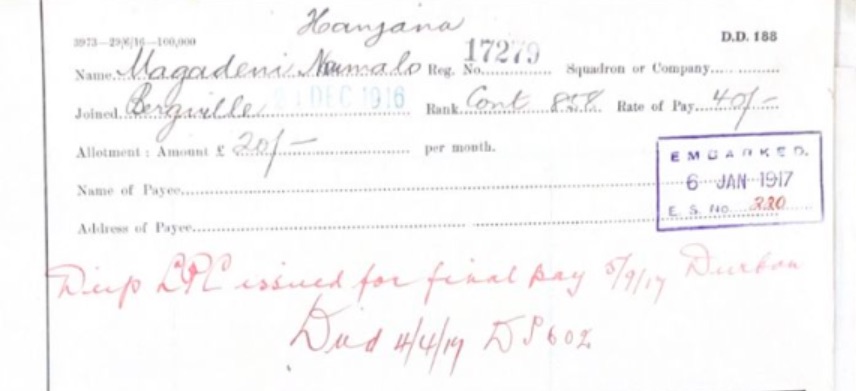 Hanjana
3973—29/6/16—100,000 D.D. 188
Name Magadeni Numalo Reg. No. 17279 Squadron or Company
Joined Bergville 21 DEC 1916 Rank Cont 858 Rate of Pay 40/-
Allotment : Amount £ 20/- per month.
EMBARKED.
Name of Payee 6 JAN 1917
E. S. NO. 220
Address of Payee
Dup LPC issued for final pay 5/9/17 Durban
Died 4/4/17 DP 602